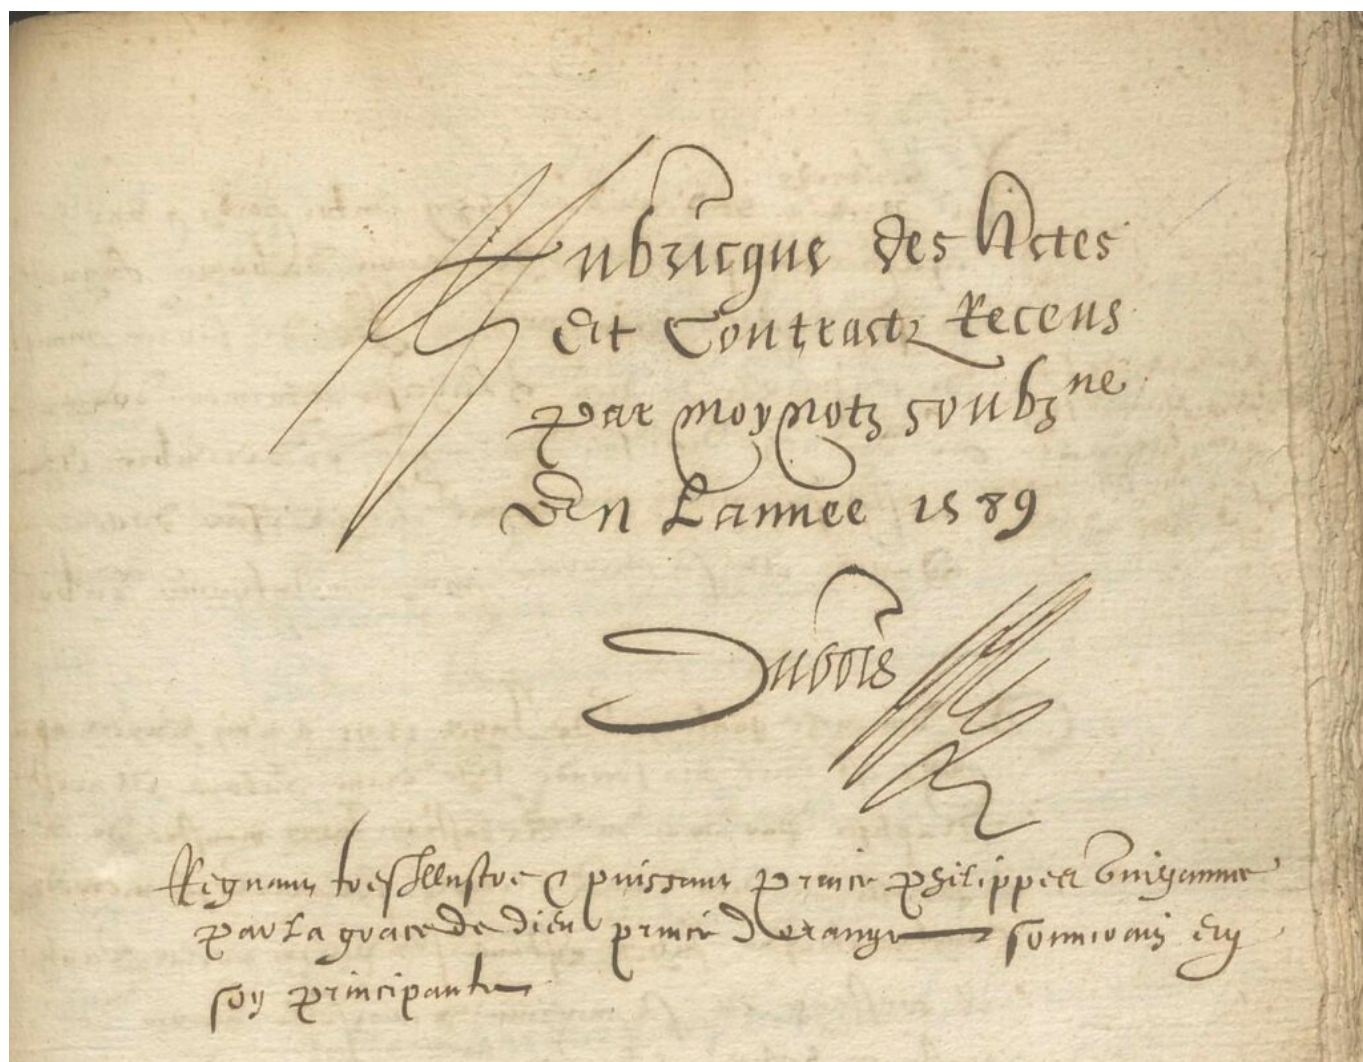 Rubricque des Actes
Et Contractz Receus
par moy Notz soubzne
En Lannee 1589
Dubois
Regnant tresillustre & puissant prince Philippes Guiyaume
par La grace de dieu prince dorange souverain en
soy principaulte